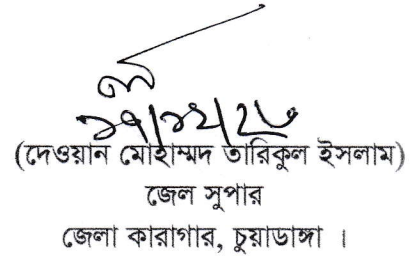 (দেওয়ান মোহাম্মদ তারিকুল ইসলাম)
জেল সুপার
জেলা কারাগার, চুয়াডাঙ্গা ।